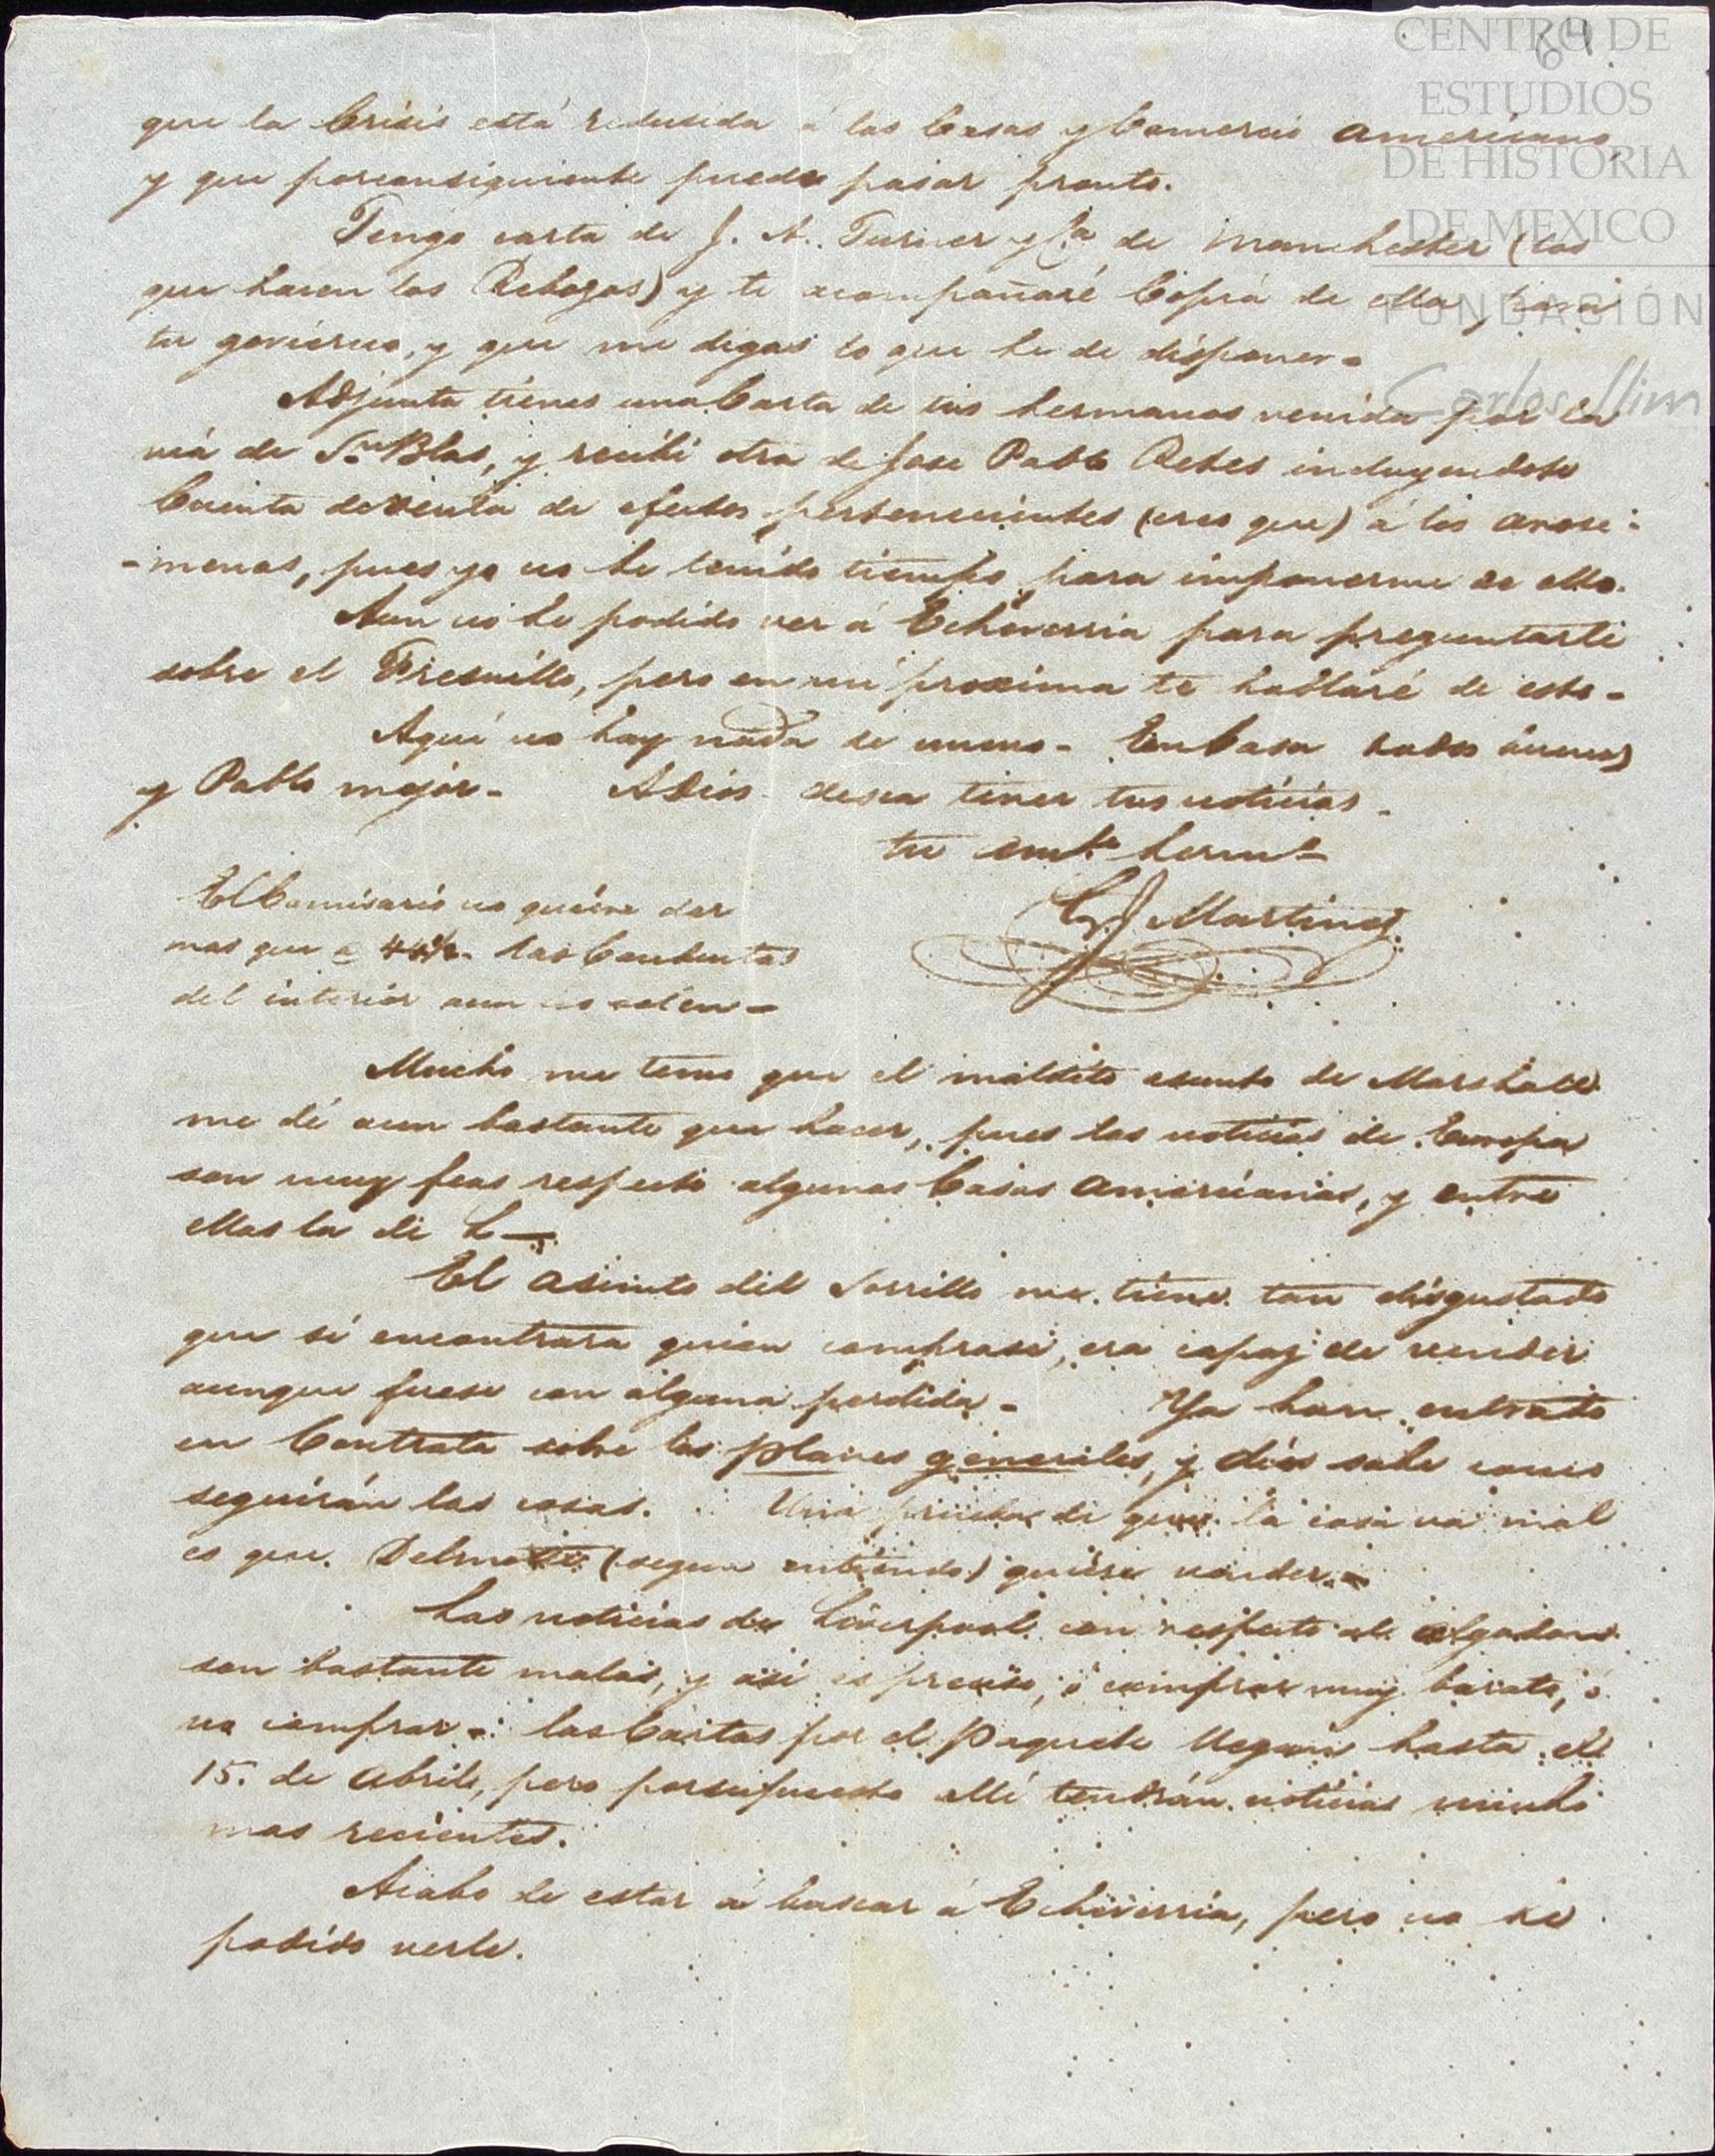 64
CENTRO DE
ESTUDIOS
DE HISTORIA
DE MEXICO
FUNDACIÓN
Carlos Slim
que la Crisis está redusida á las Casas y Comercio americano,
y que porconsiguiente puede pasar pronto.
Tengo carta de J. A. Turner y Ca de Manchester (los
que hacen los Rebozos) y te acompañaré Copia de ella, para
tu govierno, y que me digas lo que he de disponer-
Adjunta tienes una Carta de tus hermanos venida por la
viá de Sn Blas, y recibi otra de Jose Pablo Rebes incluyendote
Cuenta de venta de efectos pertenecientes (creo que) á los arose-
-menas, pues yo no he tenido tiempo para imponerme de ello.
Aun no he podido ver á Echeverria para preguntarle
sobre el Fresnillo, pero en mi proxima te hablaré de esto-
Aqui no hay nada de nuevo- En Casa todos buenos
y Pablo mejor- Adios desea tener tus noticias-
tu hermo
C J Martinez
El Comisario no quiere dar
mas que a las Conductas
del interior aun no salen-
Mucho me temo que el maldito asunto de Marshall
me dé aun bastante que hacer, pues las noticias de Europa
son muy feas respecto algunas Casas americanas, y entre
ellas la de L-
El asunto del Sorrillo me tiene tan disgustado
que si encontrara quien comprase, era capaz de vender
aunque fuese con alguna perdida- Ya han entrado
en Contrata sobre los planes generales, y dios sabe como
seguirán las cosas. Una prueba de que la cosa va mal
es que (segun entiendo) quiere vender-
Las noticias de Liverpool con respecto al algodon
son bastante malas, y asi es preciso, ó comprar muy barato, ó
no comprar- las Cartas por el Paquete llegan hasta el
15. de abril, pero porsupuesto allí tendrán noticias mucho
mas recientes.
Acabo de estar á buscar á Echeverria, pero no he
podido verle.